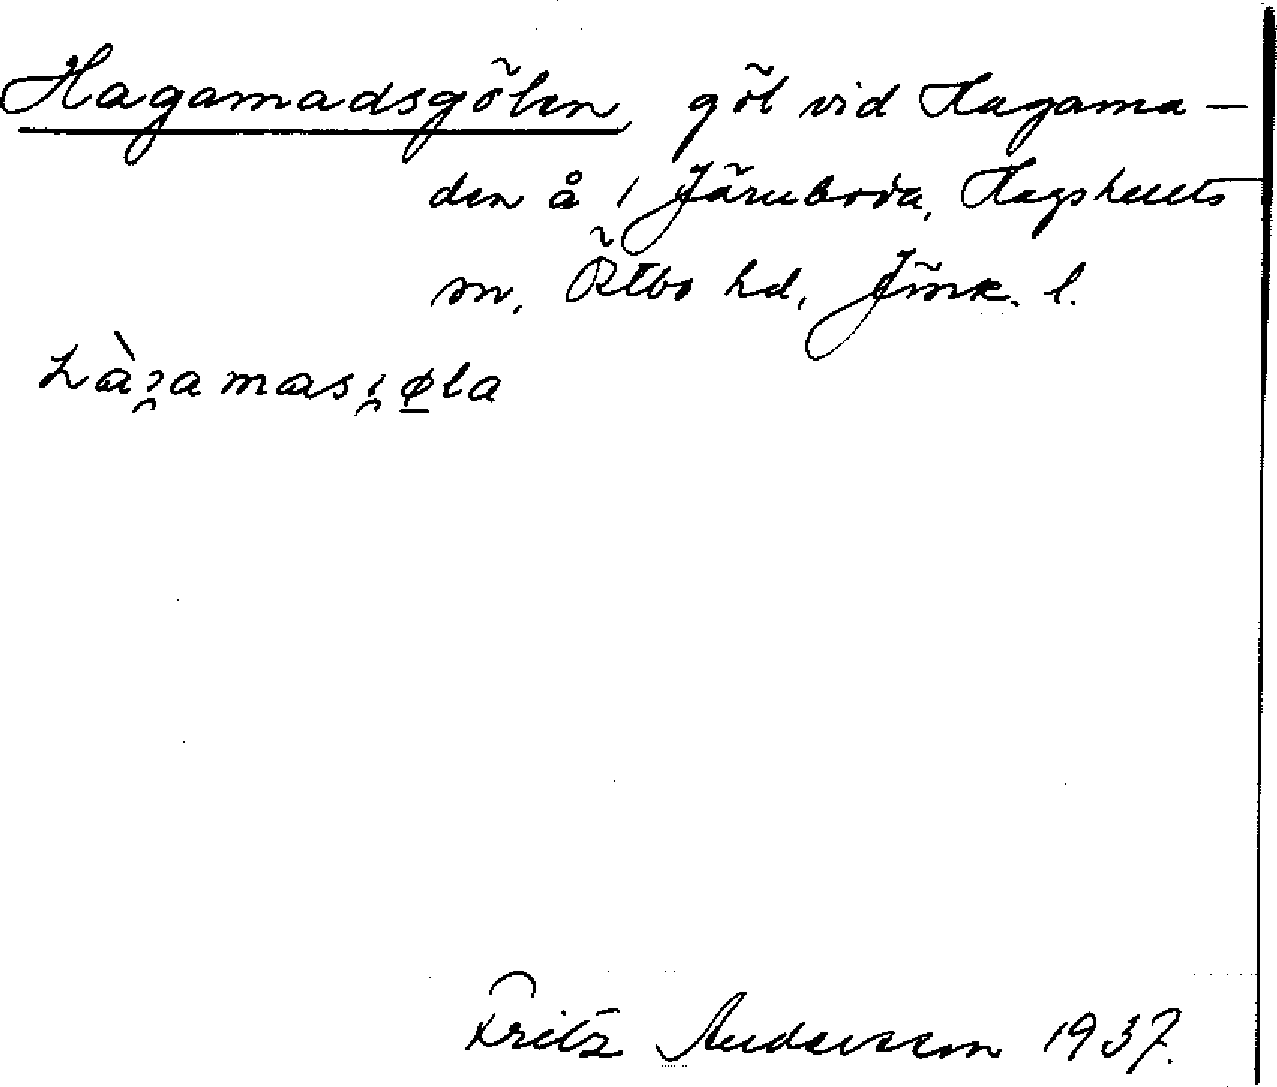 Hagamadsgölen, göl vid Hagama-
den å 1 Järuboda, Hagshults
sn, Östbo hd, Jönk. l.
Fritz Andersson 1937.